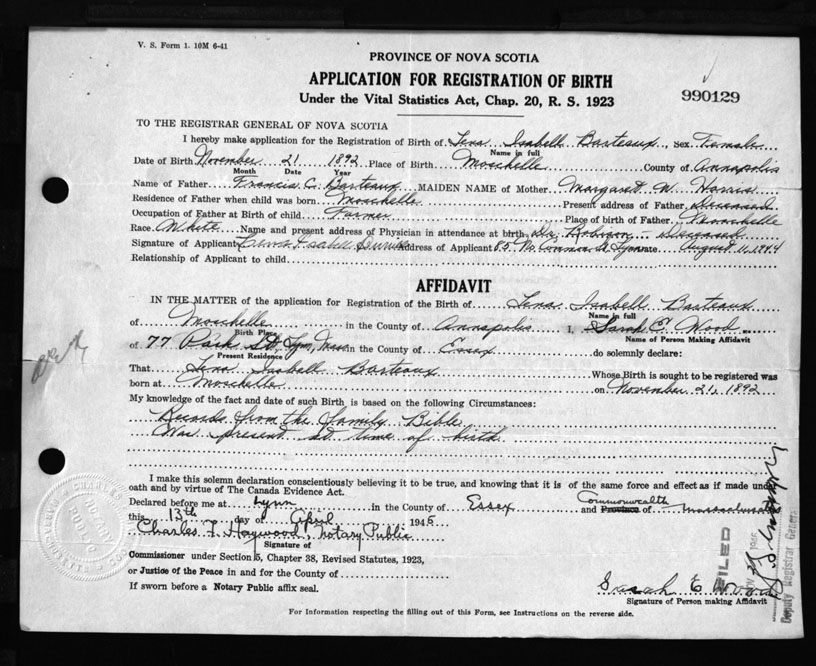 V. S. Form 1. 10M 6-41
PROVINCE OF NOVA SCOTIA
APPLICATION FOR REGISTRATION OF BIRTH
Under the Vital Statistics Act, Chap. 20, R. S. 1923
990129
TO THE REGISTRAR GENERAL OF NOVA SCOTIA
I hereby make application for the Registration of Birth of Lena Isabell Barteaux, Sex Female
Name in full
Date of Birth November 21 1892 Place of Birth Moschelle County of Annapolis
Month Date Year
Name of Father Francis C. Barteaux MAIDEN NAME of Mother Margaret W. Harris
Residence of Father when child was born Moschelle Present address of Father Deceased
Occupation of Father at Birth of child Farmer Place of birth of Father Moschelle
Race White Name and present address of Physician in attendance at birth Dr. Robinson - Deceased
Signature of Applicant Lena Isabell Address of Applicant 85 Lynn Date August 11, 1944
Relationship of Applicant to child
AFFIDAVIT
IN THE MATTER of the application for Registration of the Birth of Lena Isabell Barteaux
Name in full
of Moschelle in the County of Annapolis I, Sarah E. Wood
Birth Place Name of Person Making Affidavit
of 77 Park St, Lynn, Mass in the County of Essex do solemnly declare:
Present Residence
That Lena Isabell Barteaux Whose Birth is sought to be registered was
born at Moschelle on November 21, 1892
My knowledge of the fact and date of such Birth is based on the following Circumstances:
Records from the family Bible
Was present at time of birth
I make this solemn declaration conscientiously believing it to be true, and knowing that it is of the same force and effect as if made under
oath and by virtue of The Canada Evidence Act.
Commonwealth
Declared before me at Lynn in the County of Essex and Province of Massachusetts
this 13th day of April 1945
Charles F. Haywood, Notary Public
Signature of
Commissioner under Section 5, Chapter 38, Revised Statutes, 1923,
or Justice of the Peace in and for the County of
If sworn before a Notary Public affix seal.
Sarah E. Wood
Signature of Person making Affidavit
FILED
Deputy Registrar General
For Information respecting the filling out of this Form, see Instructions on the reverse side.